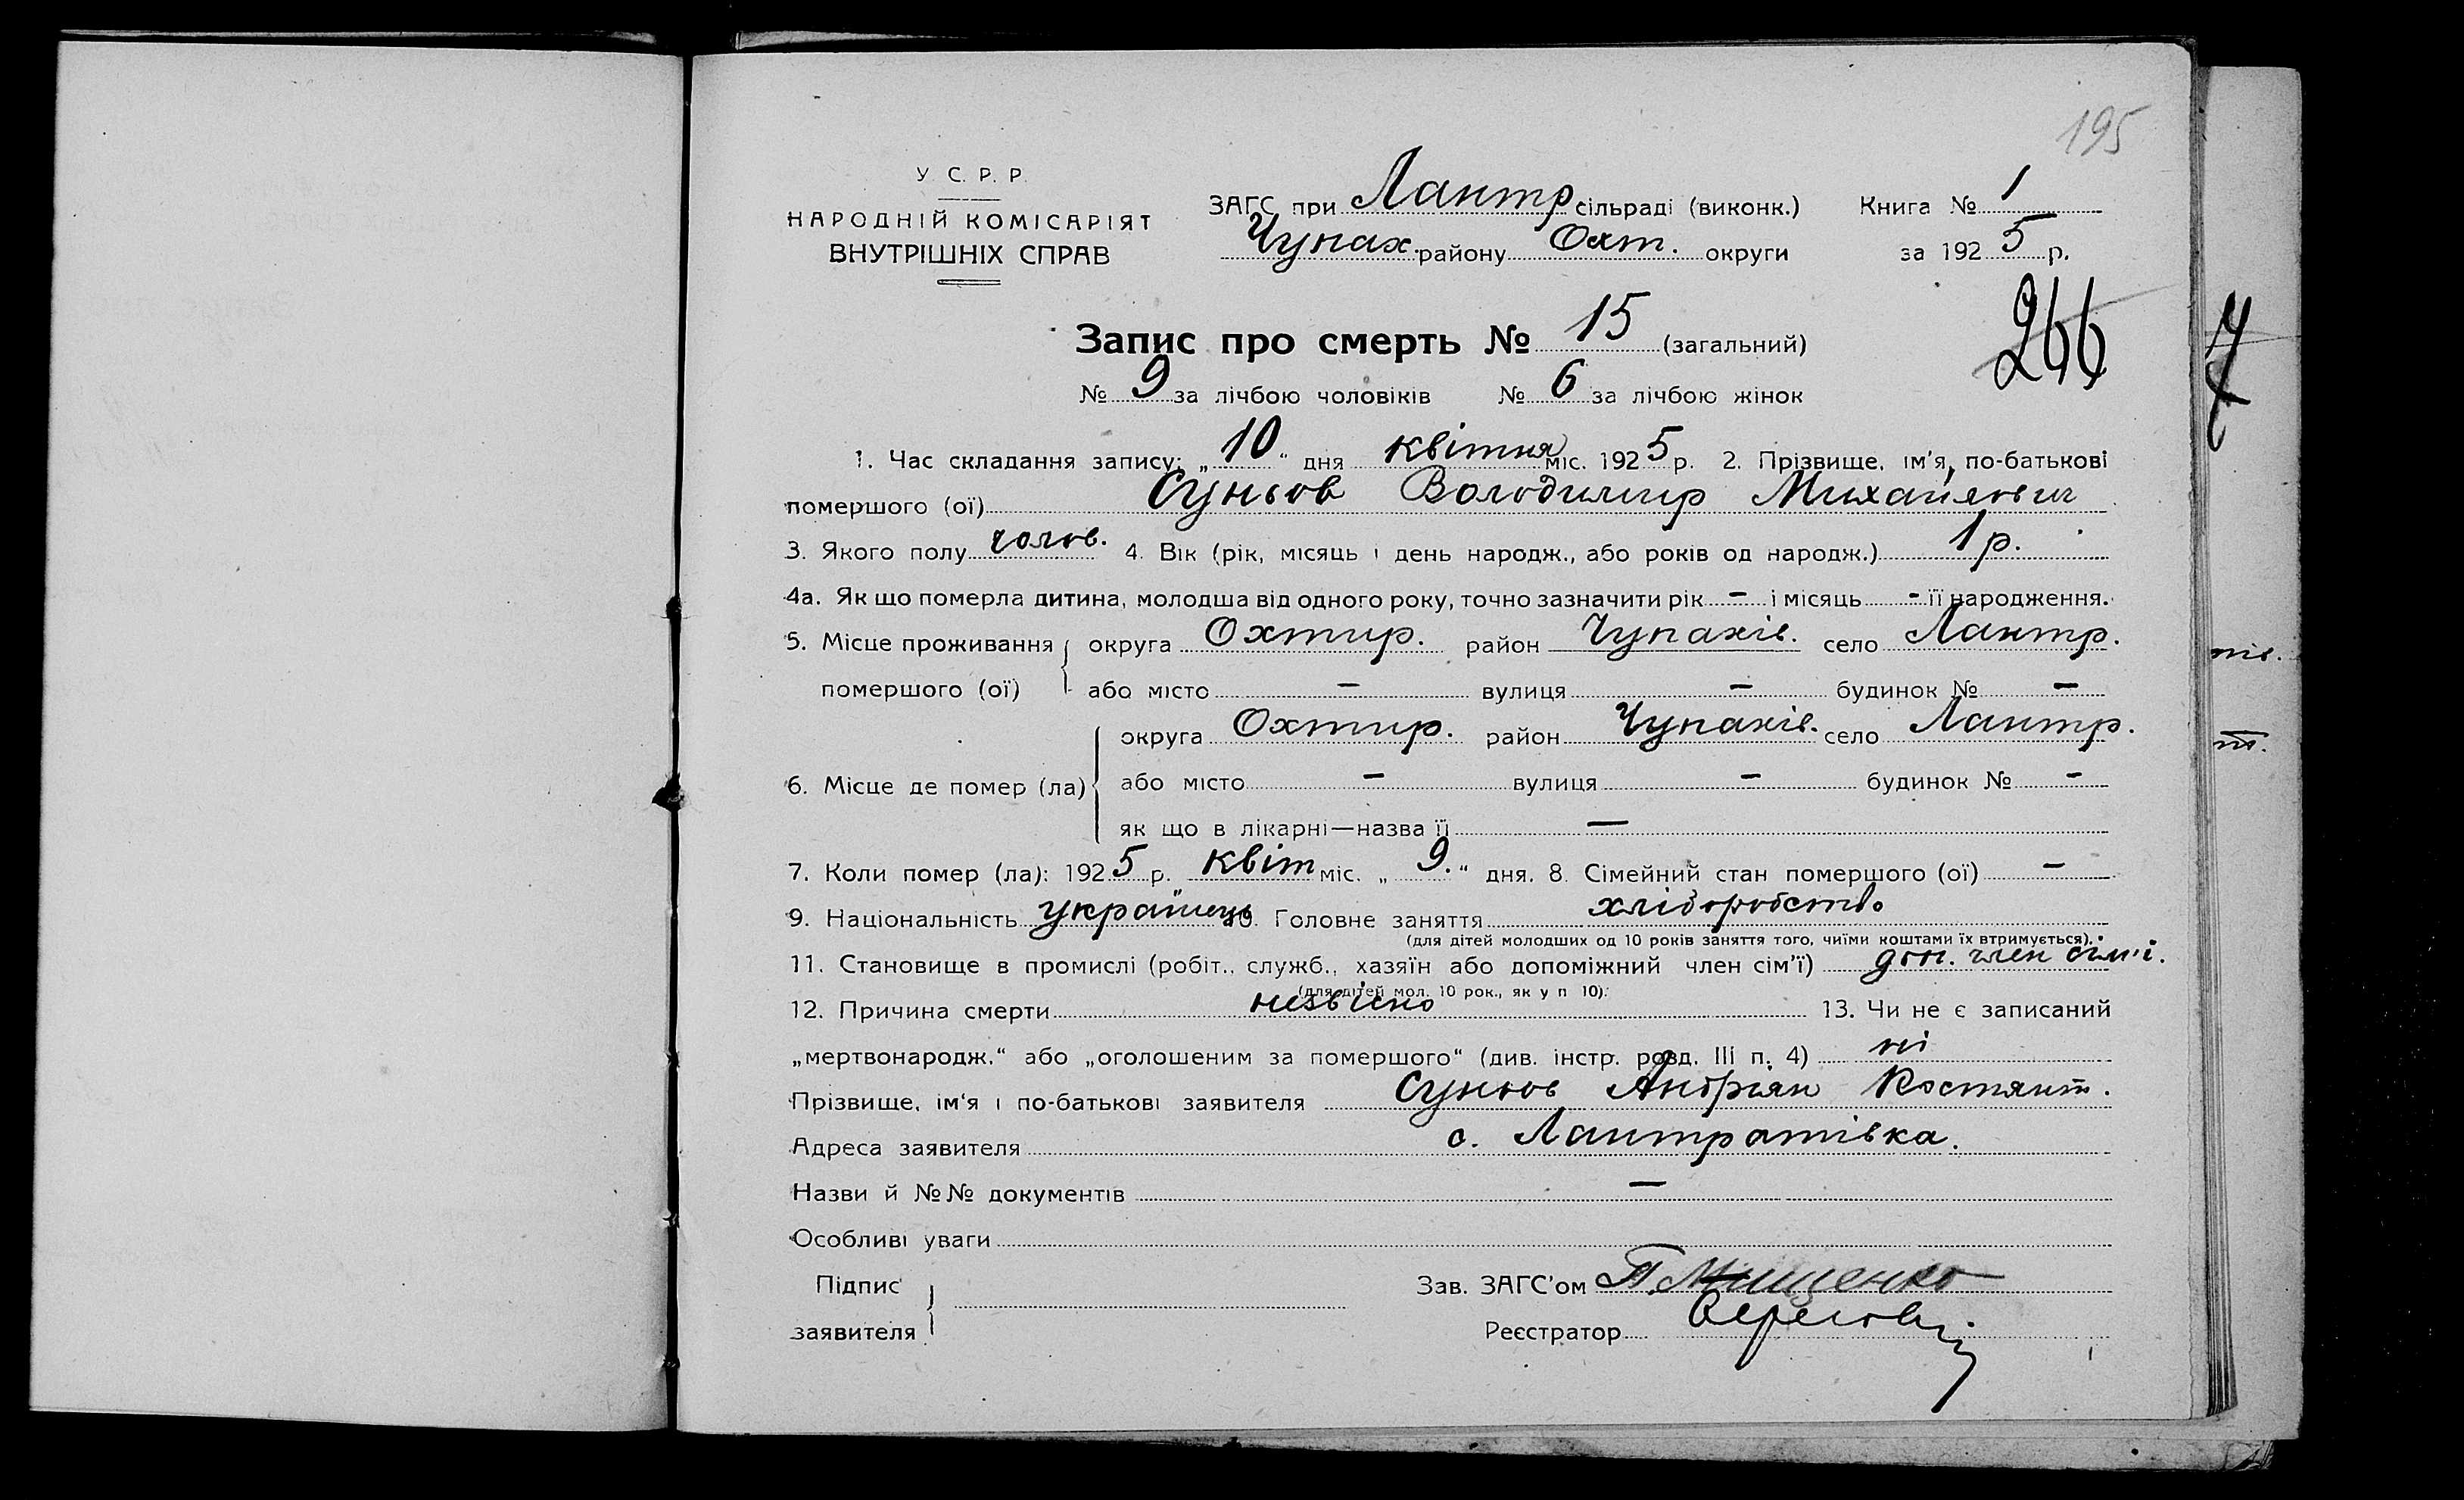 195
У С. Р. Р.
НАРОДНІЙ КОМІСАРІЯТ
ВНУТРІШНІХ СПРАВ
ЗАГС при Лантр сільраді (виконк.) Книга № 1
Чупах. району Охт. округи за 1925 р.
Запис про смерть № 15 (загальний)
266
№ 9 за лічбою чоловіків № 6 за лічбою жінок
1. Час складання запису: „10“ дня квітня міс. 1925 р. 2. Прізвище, ім'я, по-батькові
помершого (ої) Суньов Володимир Михайлович
3. Якого полу чолов. 4. Вік (рік, місяць і день народж., або років од народж.) 1 р.
4а. Як що померла дитина, молодша від одного року, точно зазначити рік - і місяць - її народження.
5. Місце проживання округа Охтир. район Чупахів. село Лантр.
помершого (ої) або місто - вулиця - будинок № -
округа Охтир. район Чупахів. село Лантр.
6. Місце де помер (ла) або місто - вулиця - будинок № -
як що в лікарні—назва її —
7. Коли помер (ла): 1925 р. квіт міс. „9.“ дня. 8. Сімейний стан помершого (ої) -
9. Національність українець 10. Головне заняття хліборобство
(для дітей молодших од 10 років заняття того, чиїми коштами їх втримується).
11. Становище в промислі (робіт., служб., хазяїн або допоміжний член сім'ї) доп. член сім'ї.
(для дітей мол. 10 рок., як у п 10).
12. Причина смерти незвісно 13. Чи не є записаний
„мертвонародж.“ або „оголошеним за помершого“ (див. інстр. розд. III п. 4) ні
Прізвище, ім'я і по-батькові заявителя Суньов Андріян Костянт.
Адреса заявителя с. Лантратівка.
Назви й №№ документів —
Особливі уваги
Підпис Зав. ЗАГС'ом П. Мищенко
заявителя Реєстратор